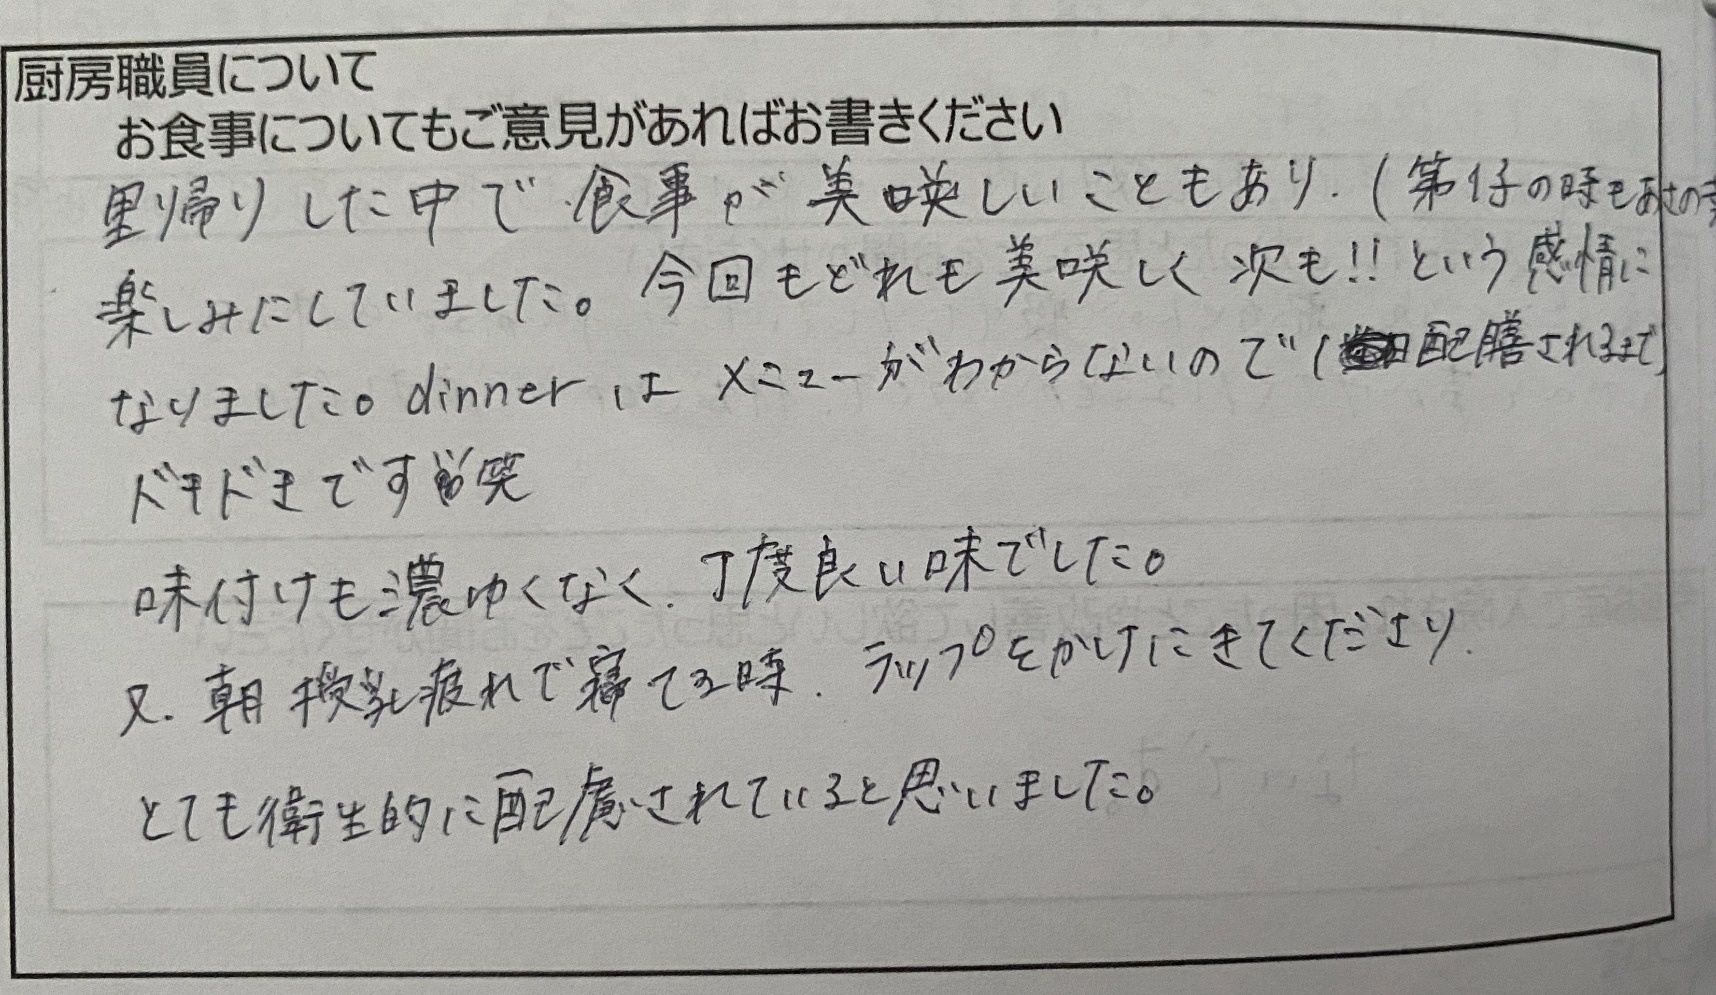 厨房職員について
お食事についてもご意見があればお書きください
里帰りした中で食事が美味しいこともあり、(第1仔の時もあさの
楽しみにしていました。今回もどれも美味しく次も!!という感情に
なりました。dinnerはメニューがわからないので(配膳されるまで)
ドキドキです笑
味付けも濃ゆくなく、丁度良い味でした。
又、朝授乳疲れで寝てる時、ラップをかけにきてくださり、
とても衛生的に配慮されていると思いました。